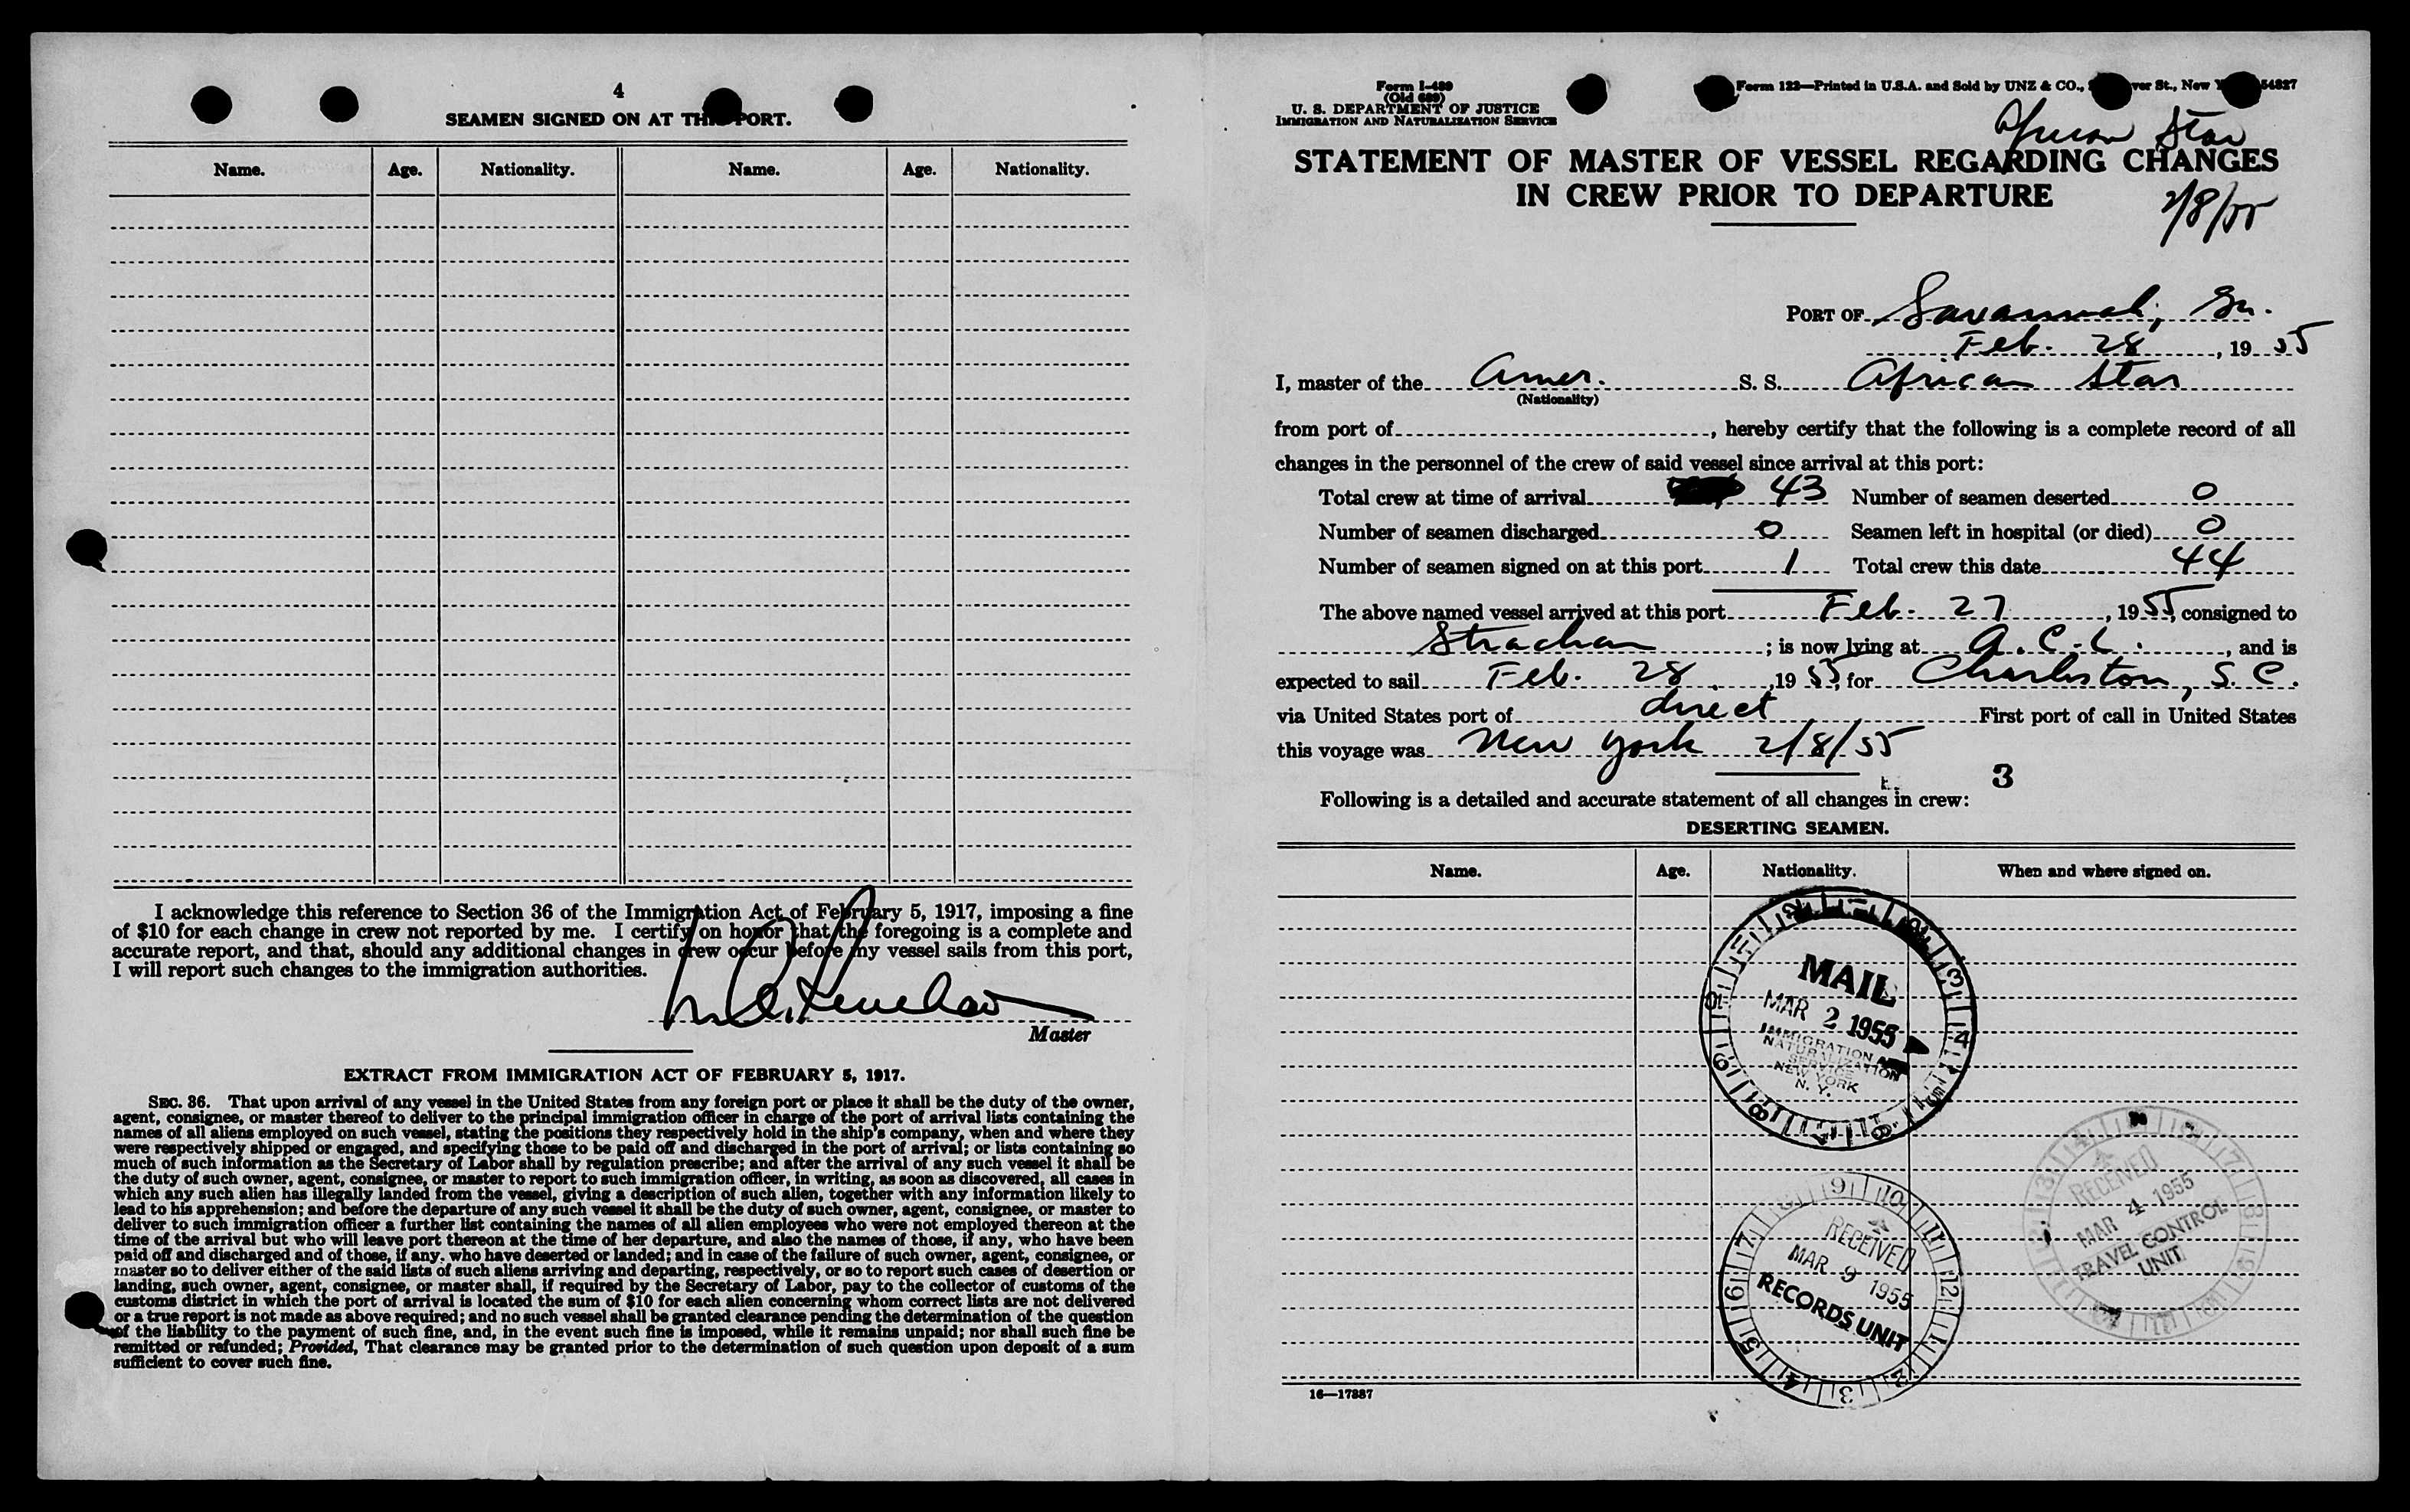 4
SEAMEN SIGNED ON AT THIS PORT.
Name. Age. Nationality. Name. Age. Nationality.
I acknowledge this reference to Section 36 of the Immigration Act of February 5, 1917, imposing a fine
of $10 for each change in crew not reported by me. I certify on honor that the foregoing is a complete and
accurate report, and that, should any additional changes in crew occur before my vessel sails from this port,
I will report such changes to the immigration authorities.
Master
EXTRACT FROM IMMIGRATION ACT OF FEBRUARY 5, 1917.
SEC. 36. That upon arrival of any vessel in the United States from any foreign port or place it shall be the duty of the owner,
agent, consignee, or master thereof to deliver to the principal immigration officer in charge of the port of arrival lists containing the
names of all aliens employed on such vessel, stating the positions they respectively hold in the ship's company, when and where they
were respectively shipped or engaged, and specifying those to be paid off and discharged in the port of arrival; or lists containing so
much of such information as the Secretary of Labor shall by regulation prescribe; and after the arrival of any such vessel it shall be
the duty of such owner, agent, consignee, or master to report to such immigration officer, in writing, as soon as discovered, all cases in
which any such alien has illegally landed from the vessel, giving a description of such alien, together with any information likely to
lead to his apprehension; and before the departure of any such vessel it shall be the duty of such owner, agent, consignee, or master to
deliver to such immigration officer a further list containing the names of all alien employees who were not employed thereon at the
time of the arrival but who will leave port thereon at the time of her departure, and also the names of those, if any, who have been
paid off and discharged and of those, if any, who have deserted or landed; and in case of the failure of such owner, agent, consignee, or
master so to deliver either of the said lists of such aliens arriving and departing, respectively, or so to report such cases of desertion or
landing, such owner, agent, consignee, or master shall, if required by the Secretary of Labor, pay to the collector of customs of the
customs district in which the port of arrival is located the sum of $10 for each alien concerning whom correct lists are not delivered
or a true report is not made as above required; and no such vessel shall be granted clearance pending the determination of the question
of the liability to the payment of such fine, and, in the event such fine is imposed, while it remains unpaid; nor shall such fine be
remitted or refunded; Provided, That clearance may be granted prior to the determination of such question upon deposit of a sum
sufficient to cover such fine.
Form I-489
(Old 689)
U. S. DEPARTMENT OF JUSTICE
IMMIGRATION AND NATURALIZATION SERVICE
Form 122—Printed in U.S.A. and Sold by UNZ & CO., ver St., New 54827
African Star
STATEMENT OF MASTER OF VESSEL REGARDING CHANGES
IN CREW PRIOR TO DEPARTURE
2/8/55
PORT OF Savannah, Ga.
Feb. 28, 1955
I, master of the Amer. S. S. African Star
(Nationality)
from port of , hereby certify that the following is a complete record of all
changes in the personnel of the crew of said vessel since arrival at this port:
Total crew at time of arrival 43 Number of seamen deserted 0
Number of seamen discharged 0 Seamen left in hospital (or died) 0
Number of seamen signed on at this port 1 Total crew this date 44
The above named vessel arrived at this port Feb. 27, 1955, consigned to
Strachan ; is now lying at A.C.L., and is
expected to sail Feb. 28, 1955, for Charleston, S.C.
via United States port of direct First port of call in United States
this voyage was New York 2/8/55
3
Following is a detailed and accurate statement of all changes in crew:
DESERTING SEAMEN.
Name. Age. Nationality. When and where signed on.
MAIL
MAR 2 1955
IMMIGRATION AND
NATURALIZATION
SERVICE
NEW YORK
N. Y.
RECEIVED
MAR 4 1955
TRAVEL CONTROL
UNIT
RECEIVED
MAR 9 1955
RECORDS UNIT
16—17887